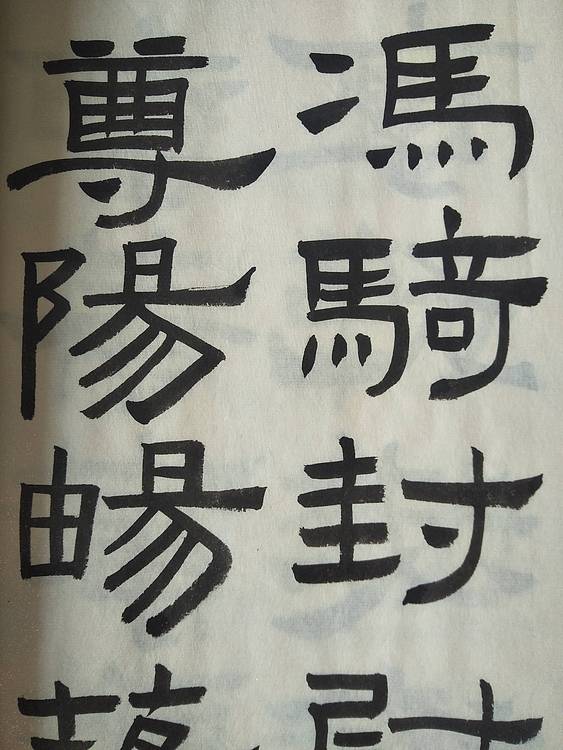 馮騎封
尊陽暢